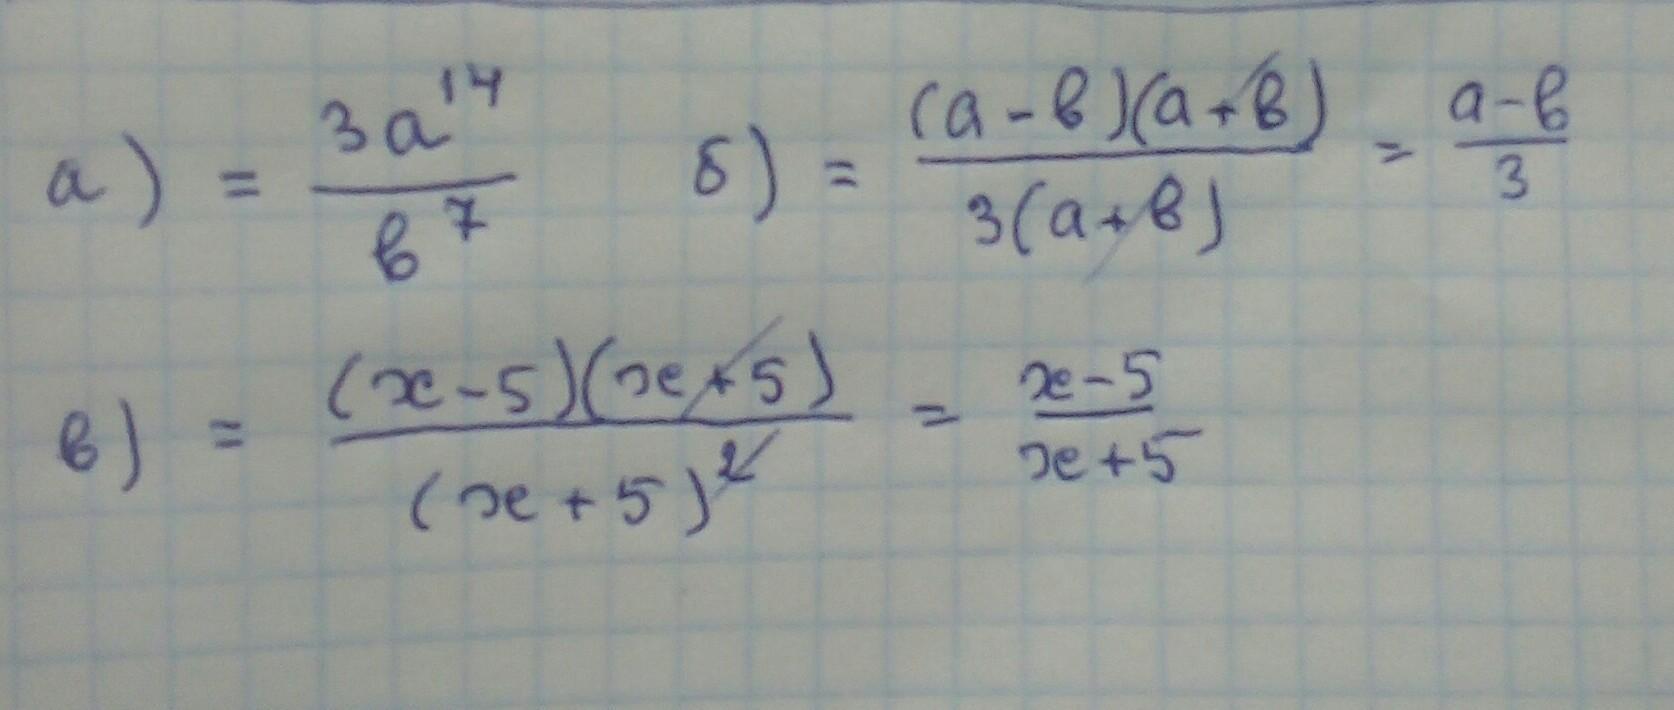 а) = 3a¹⁴/b⁷ б) = (a-b)(a+b)/3(a+b) = a-b/3
в) = (x-5)(x+5)/(x+5)² = x-5/x+5